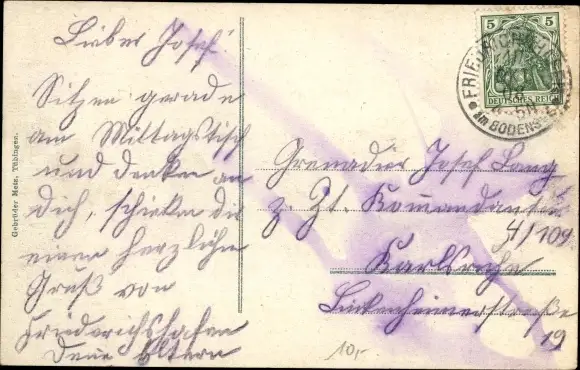 Lieber Josef
Sitzen gerade
am Mittagstisch
und denken an
dich, schicken dir
einen herzlichen
Gruß von
Friedrichshafen
Deine Eltern
Grenadier Josef Lang
z. Zt. Kommandantur
4/109
Karlsruhe
Linkenheimerstraße
19
10,-
5 5
DEUTSCHES REICH
FRIEDRICHSHAFEN
AM BODENSEE
Gebrüder Metz, Tübingen.